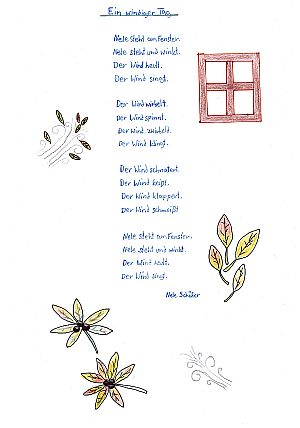 Ein windiger Tag
Nele steht am Fenster.
Nele steht und winkt.
Der Wind heult.
Der Wind singt.
Der Wind wirbelt.
Der Wind spinnt.
Der Wind
Der Wind klingt.
Der Wind schnattert.
Der Wind beißt.
Der Wind klappert.
Der Wind schmeißt
Nele steht am Fenster.
Nele steht und winkt.
Der Wind
Der Wind singt.
Nele Schäfer